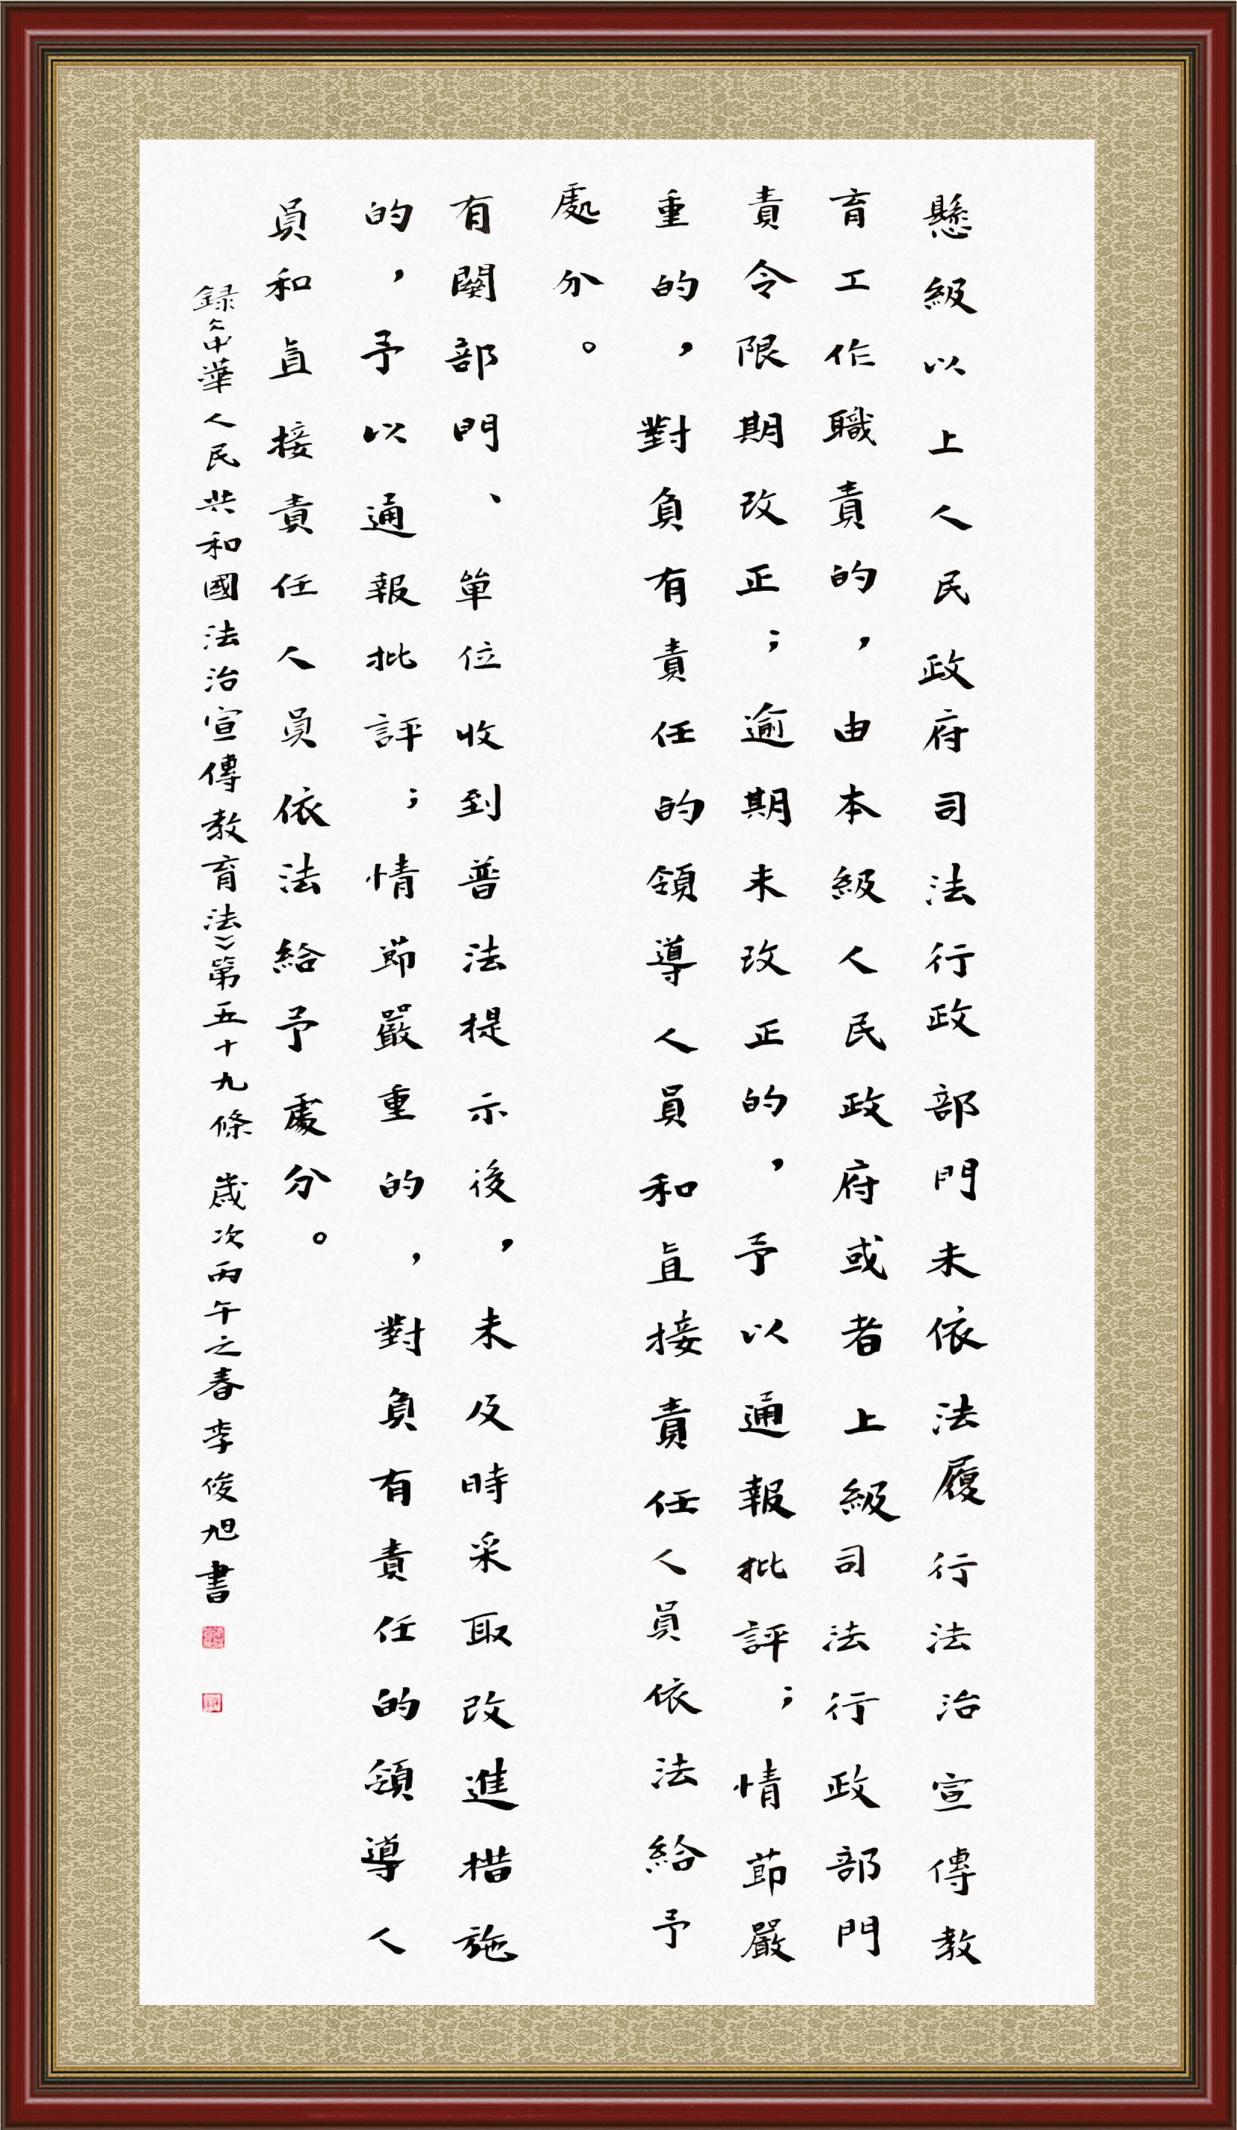 懸級以上人民政府司法行政部門未依法履行法治宣傳教
育工作職責的，由本級人民政府或者上級司法行政部門
責令限期改正；逾期未改正的，予以通報批評；情節嚴
重的，對負有責任的領導人員和直接責任人員依法給予
處分。
有關部門、單位收到普法提示後，未及時采取改進措施
的，予以通報批評；情節嚴重的，對負有責任的領導人
員和直接責任人員依法給予處分。
録《中華人民共和國法治宣傳教育法》第五十九條 歲次丙午之春李俊旭書